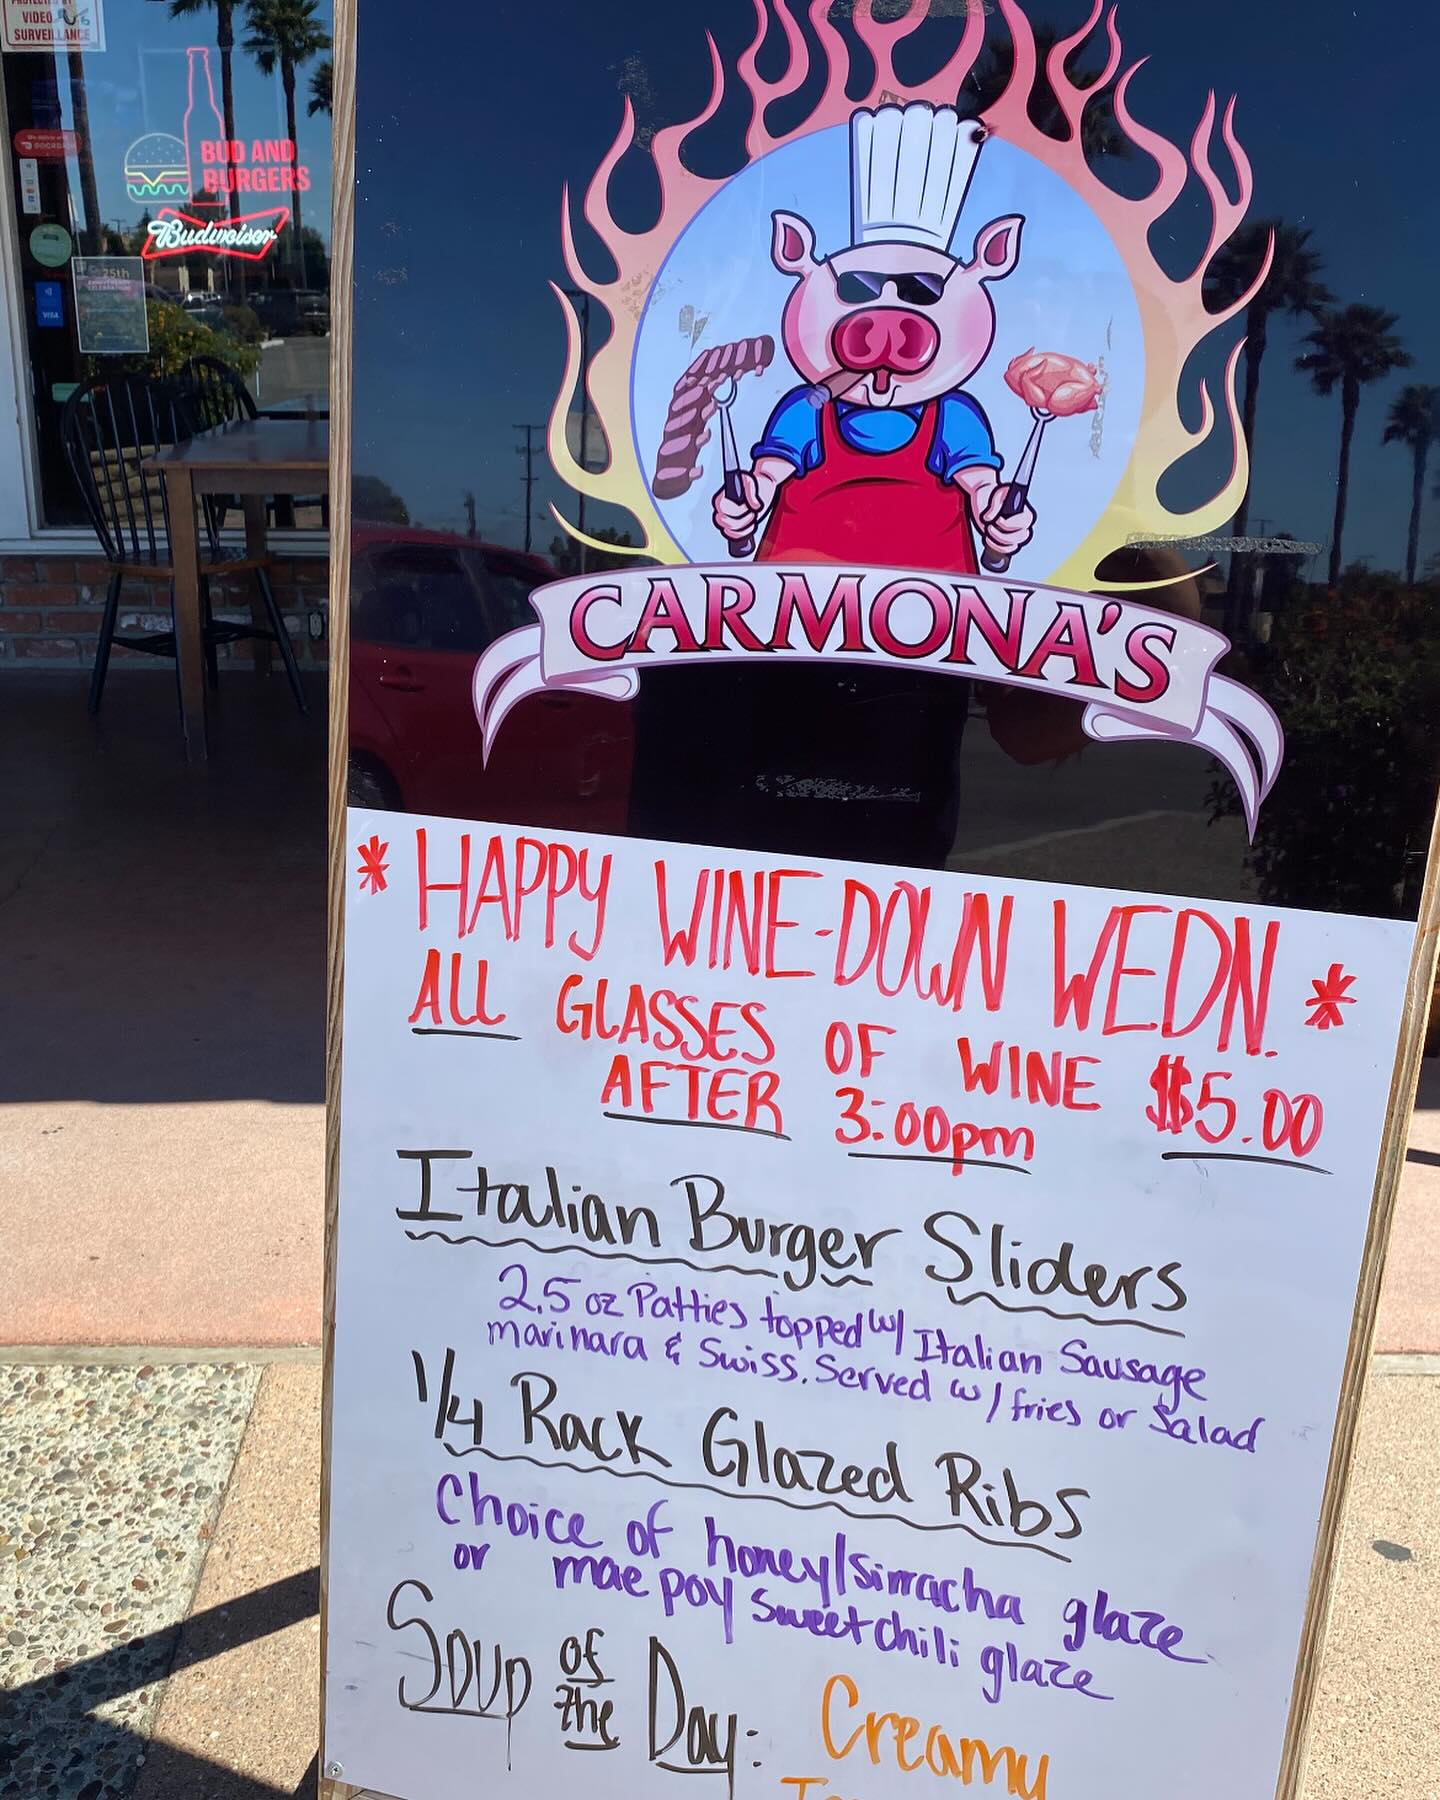 VIDEO
SURVEILLANCE
BUD AND
BURGERS
Budweiser
25th
VISA
CARMONA'S
* HAPPY WINE-DOWN WEDN. *
ALL GLASSES OF WINE $5.00
AFTER 3:00pm
Italian Burger Sliders
2.5 oz Patties topped w/ Italian Sausage
marinara & Swiss. Served w/ fries or Salad
1/4 Rack Glazed Ribs
Choice of honey/sirracha glaze
or mae poy sweet chili glaze
Soup of the Day: Creamy